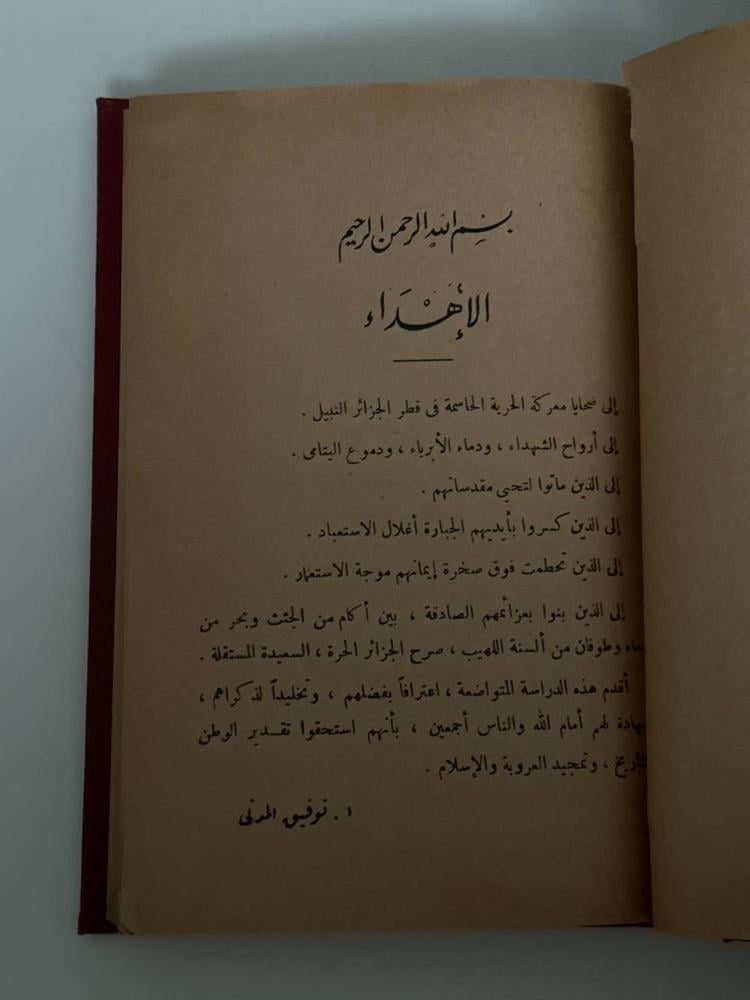 بسم الله الرحمن الرحيم
الإهْدَاء
إلى ضحايا معركة الحرية الحاسمة فى قطر الجزائر النبيل .
إلى أرواح الشهداء ، ودماء الأبرياء ، ودموع اليتامى .
إلى الذين ماتوا لتحيى مقدساتهم .
إلى الذين كسروا بأيديهم الجبارة أغلال الاستعباد .
إلى الذين تحطمت فوق صخرة إيمانهم موجة الاستعمار .
إلى الذين بنوا بعزائمهم الصادقة ، بين أكام من الجثث وبحر من
وطوفان من ألسنة اللهيب ، صرح الجزائر الحرة ، السعيدة المستقلة .
أقدم هذه الدراسة المتواضعة ، اعترافاً بفضلهم ، وتخليداً لذكراهم ،
لهم أمام الله والناس أجمعين ، بأنهم استحقوا تقدير الوطن
، وتمجيد العروبة والإسلام .
ا . توفيق المدنى